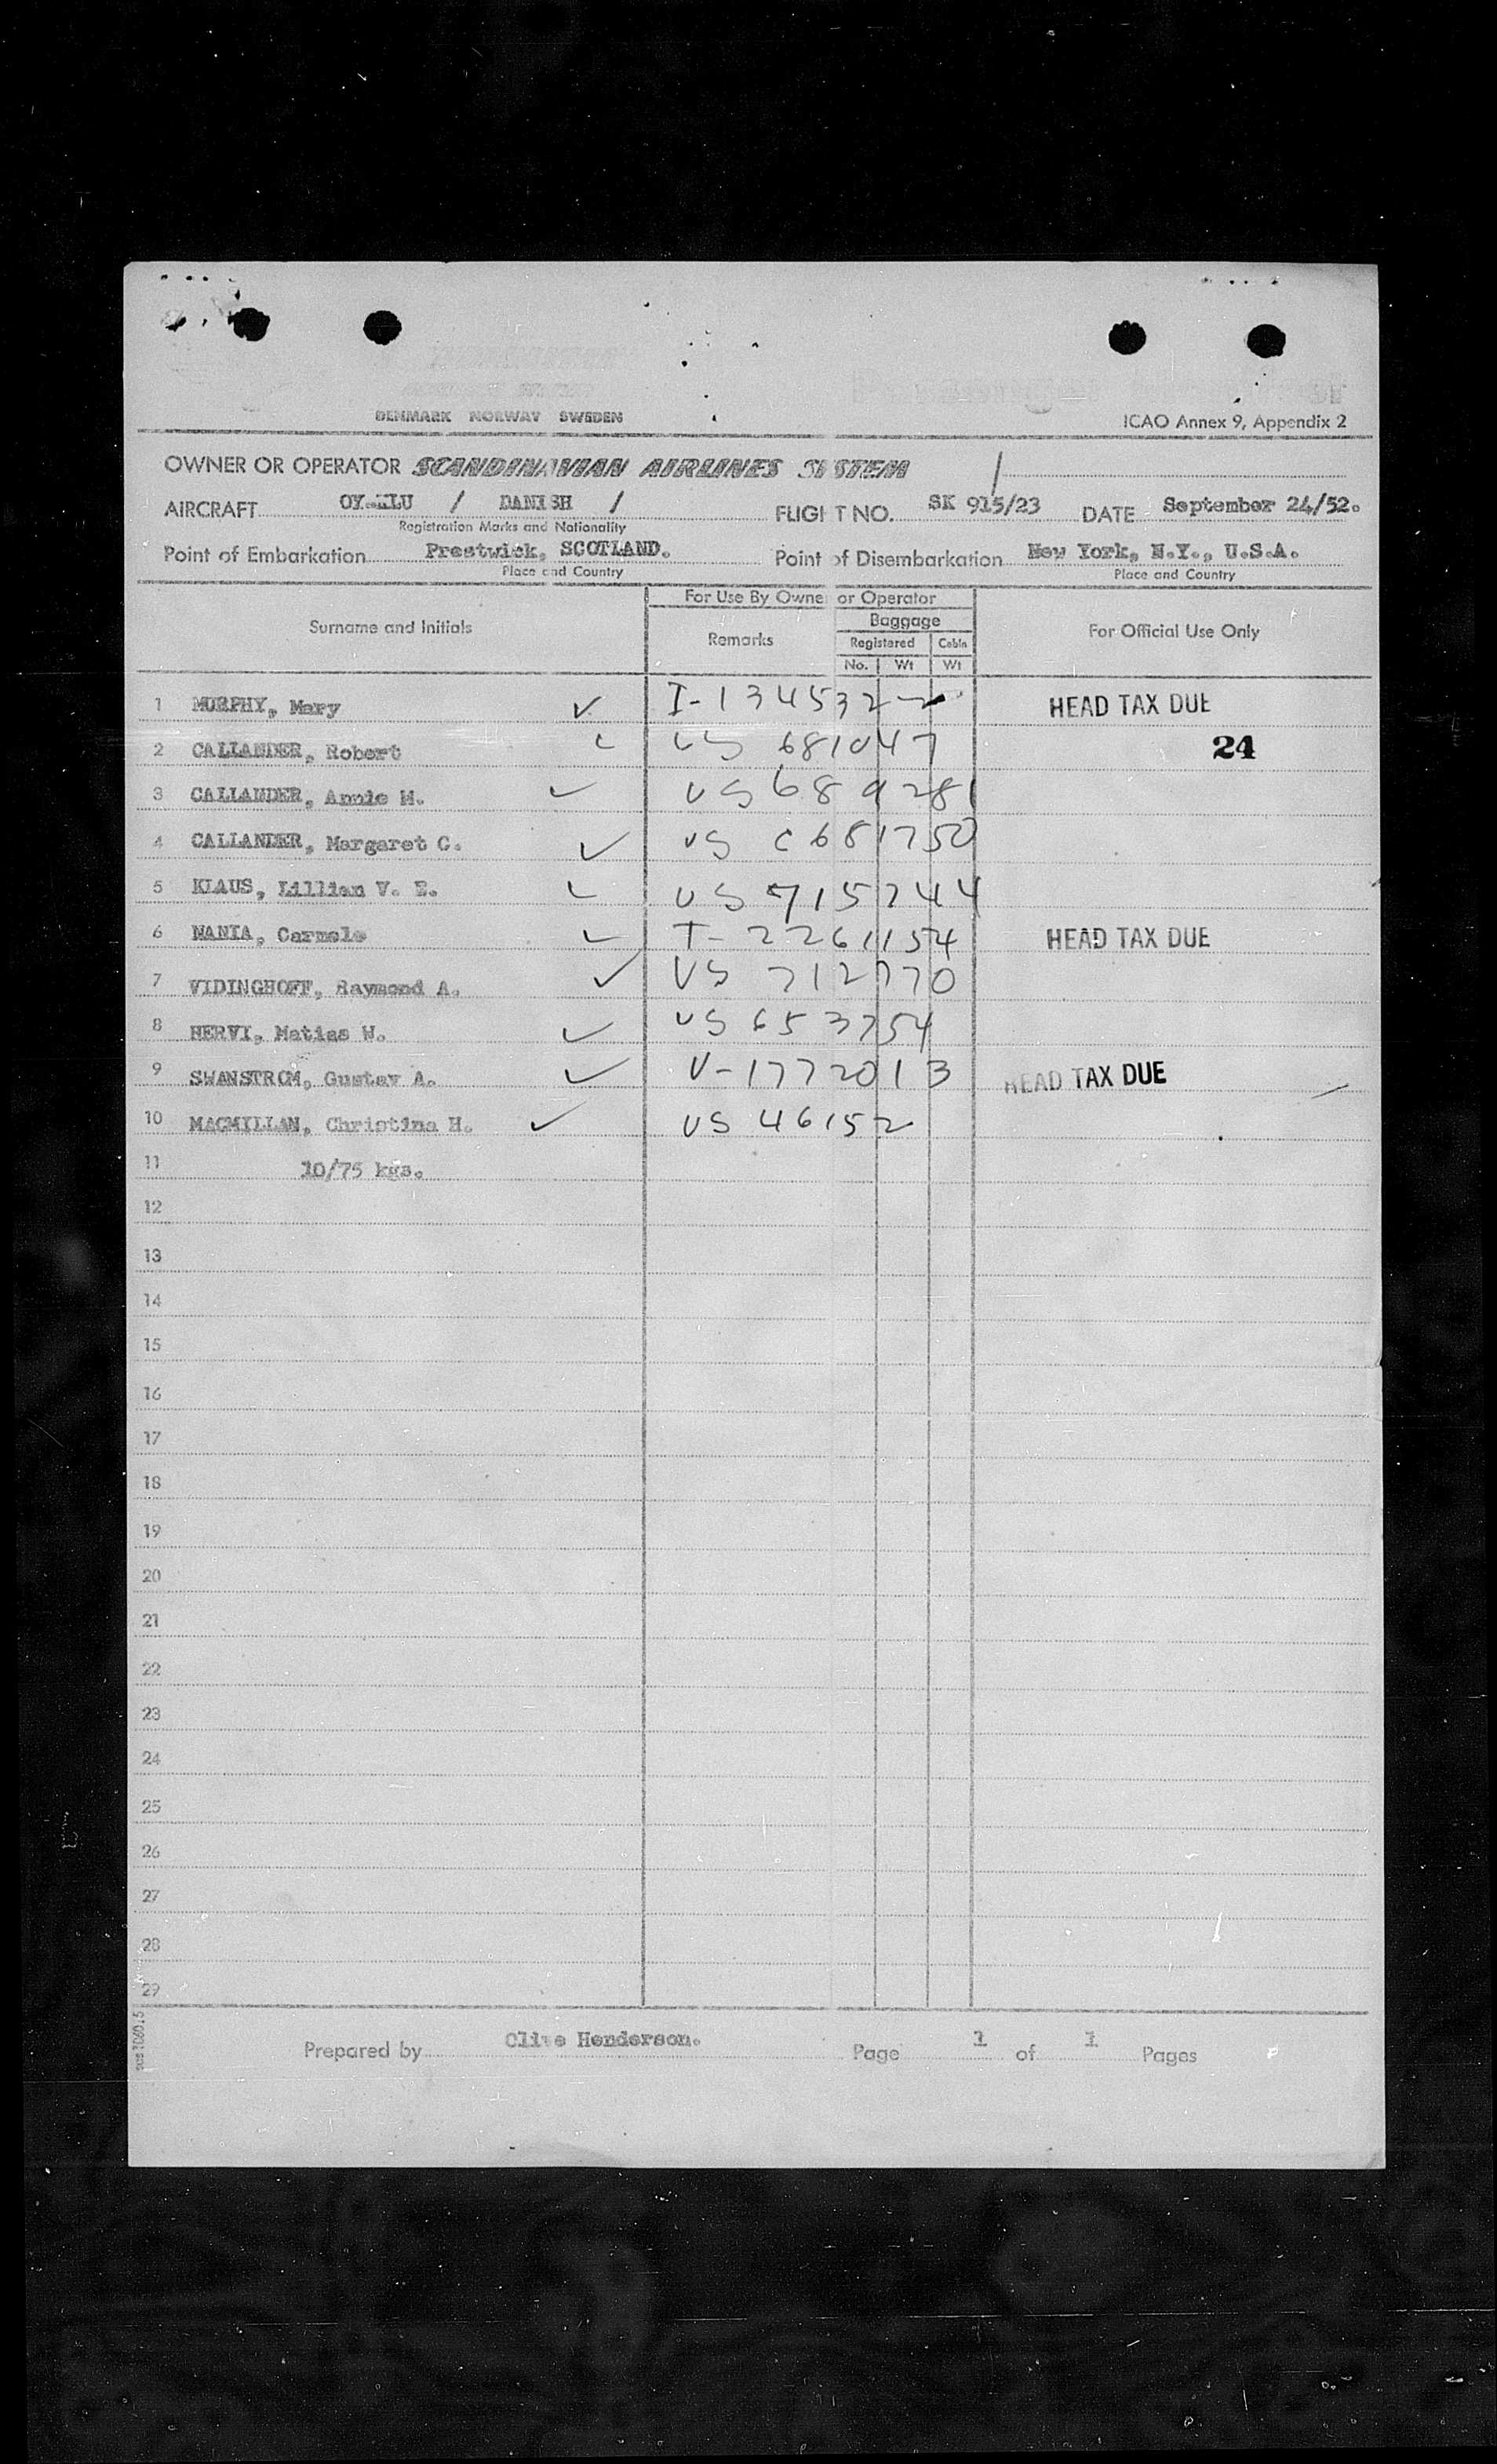 DENMARK NORWAY SWEDEN
ICAO Annex 9, Appendix 2
OWNER OR OPERATOR SCANDINAVIAN AIRLINES SYSTEM
AIRCRAFT / DANISH / FLIGHT NO. SK 915/23 DATE September 24/52.
Registration Marks and Nationality
Point of Embarkation Prestwick, SCOTLAND. Point of Disembarkation New York, N.Y., U.S.A.
Place and Country Place and Country
For Use By Owner or Operator
Surname and Initials Remarks Baggage For Official Use Only
Registered Cabin
No. Wt Wt
1 MURPHY, Mary ✓ I-1345322 HEAD TAX DUE
2 CALLANDER, Robert ✓ US 681047 24
3 CALLANDER, Annie M. ✓ US 689281
4 CALLANDER, Margaret C. ✓ US C681750
5 KLAUS, Lillian V. E. ✓ US 715744
6 NANIA, Carmelo ✓ T-2261154 HEAD TAX DUE
7 VIDINGHOFF, Raymond A. ✓ US 712770
8 HERVI, Matias W. ✓ US 653754
9 SWANSTROM, Gustav A. ✓ V-1772013 HEAD TAX DUE
10 MACMILLAN, Christina H. ✓ US 46152
11 10/75 kgs.
12
13
14
15
16
17
18
19
20
21
22
23
24
25
26
27
28
29
Prepared by Clive Henderson. Page 1 of 1 Pages